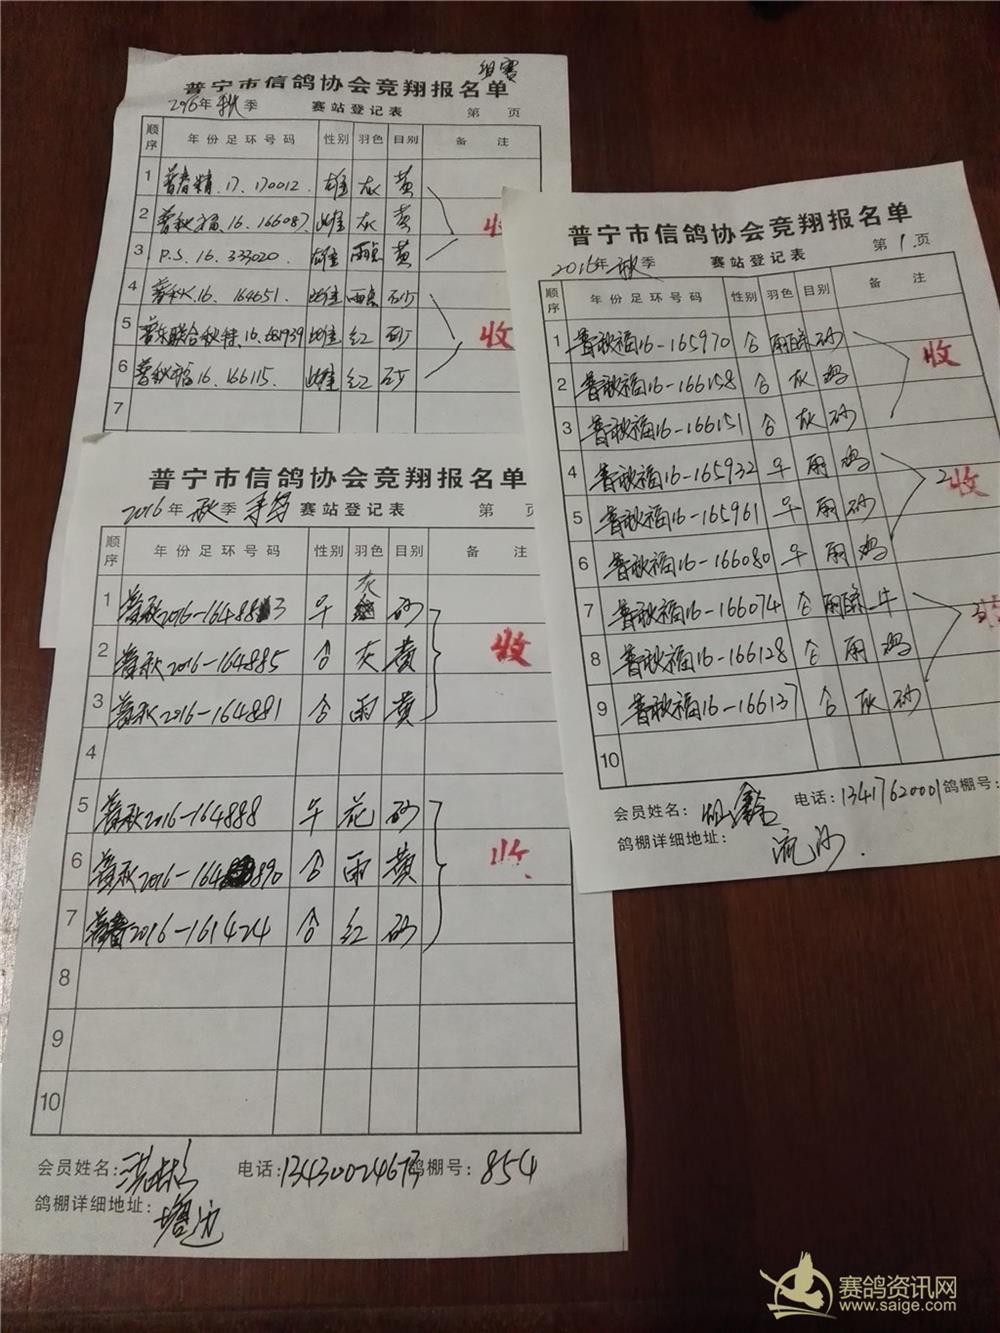 组赛
普宁市信鸽协会竞翔报名单
2016年 秋 季 赛站登记表 第 页
顺序 年份足环号码 性别 羽色 目别 备 注
1 普春精.17.170012. 雄 灰 黄
2 普秋福.16.166087. 雌 灰 黄 收
3 P.S.16.333020. 雄 雨点 黄
4 普秋.16.164651. 雌 雨点 砂
5 普东联合秋特.16.681939 雌 红 砂 收
6 普秋福16.166115. 雌 红 砂
7
普宁市信鸽协会竞翔报名单
2016年 秋 季 赛站登记表 第 1 页
顺序 年份足环号码 性别 羽色 目别 备 注
1 普秋福16-165970 合 砂
2 普秋福16-166158 合 灰 鸡 收
3 普秋福16-166151 合 灰 砂
4 普秋福16-165932 早 雨 鸡
5 普秋福16-165961 早 雨 砂 2 收
6 普秋福16-166080 早 雨 鸡
7 普秋福16-166074 合 牛
8 普秋福16-166128 合 雨 鸡
9 普秋福16-166137 合 灰 砂
10
会员姓名: 电话: 13417620001 鸽棚号:
鸽棚详细地址: 流沙.
普宁市信鸽协会竞翔报名单
2016年 秋 季 赛站登记表 第 页
顺序 年份足环号码 性别 羽色 目别 备 注
1 普秋2016-164883 早 灰 砂
2 普秋2016-164885 合 灰 黄 收
3 普秋2016-164881 合 雨 黄
4
5 普秋2016-164888 早 花 砂
6 普秋2016-164890 合 雨 黄 收
7 普春2016-161424 合 红 砂
8
9
10
会员姓名: 电话: 13430024673 鸽棚号: 854
鸽棚详细地址: 塘边
赛鸽资讯网
www.saige.com